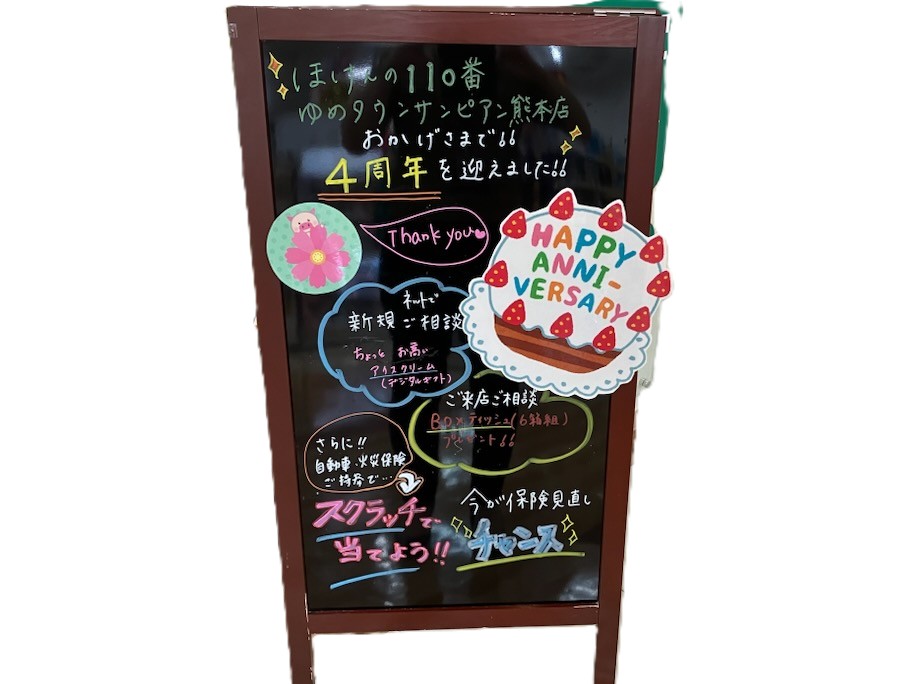 ほけんの110番
ゆめタウンサンピアン熊本店
おかげさまで!!
4周年を迎えました!!
Thank you
HAPPY
ANNI-
VERSARY
ネットで
新規ご相談
ちょっと お高い
アイスクリーム
(デジタルギフト)
ご来店ご相談
BOXティッシュ(6箱組)
プレゼント!!
さらに!!
自動車・火災保険
ご持参で…
スクラッチで
当てよう!!
今が保険見直し
チャンス